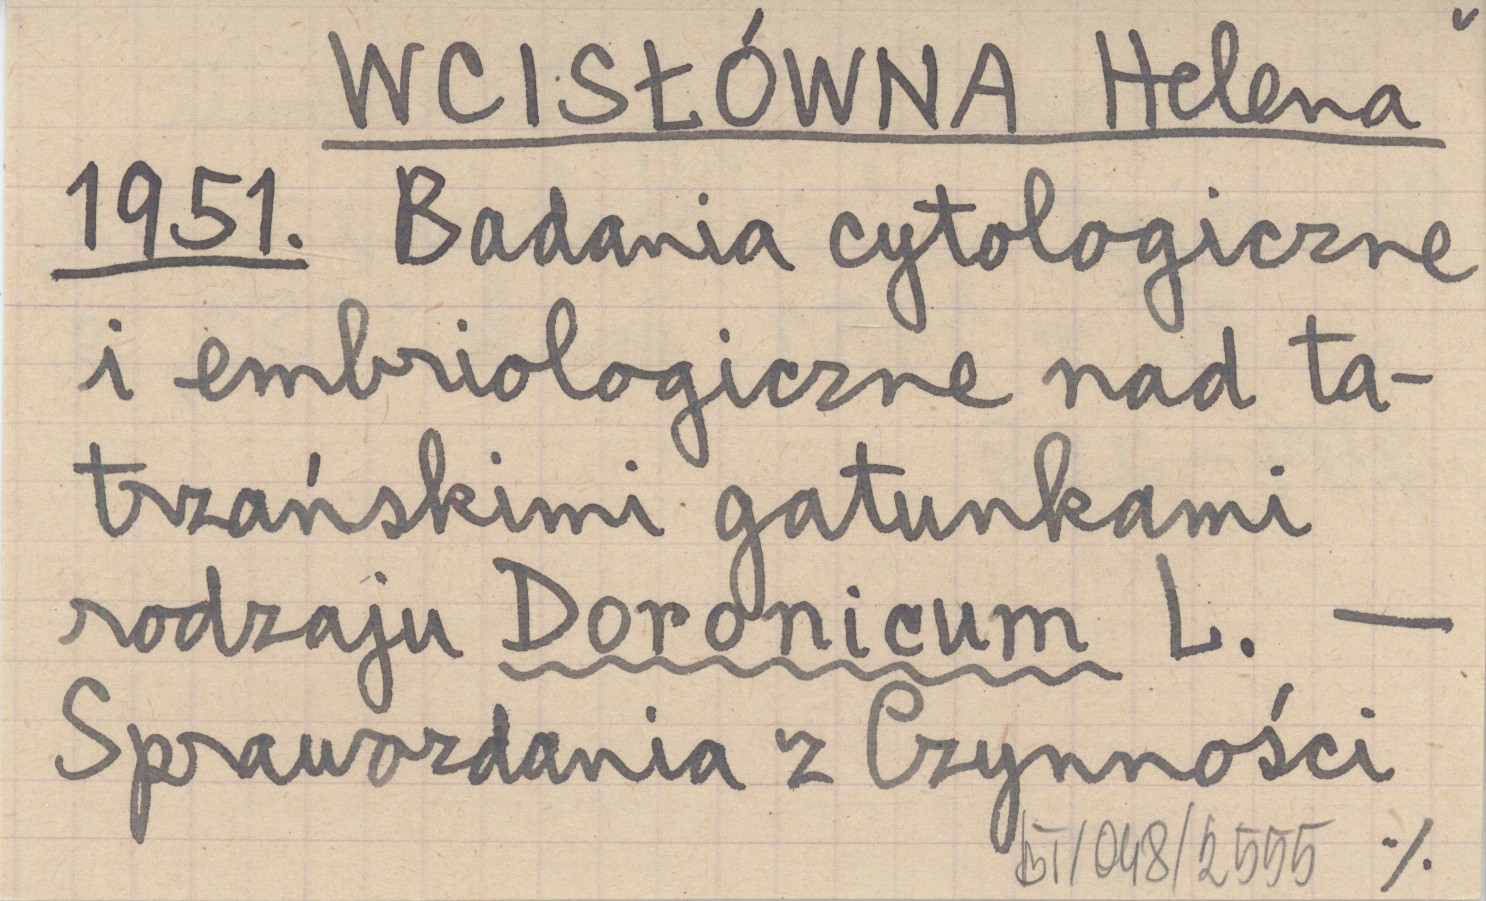 WCISŁÓWNA Helena
1951. Badania cytologiczne
i embriologiczne nad ta-
trzańskimi gatunkami
rodzaju Doronicum L. —
Sprawozdania z Czynności
/048/2555 ./.